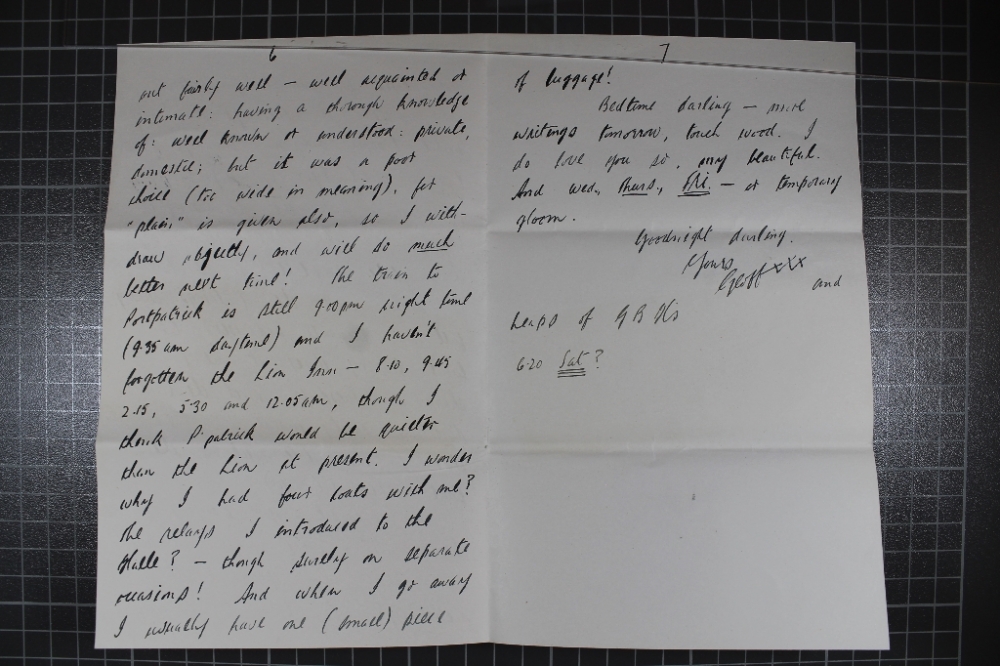 6
out fairly well – well acquainted or
intimate: having a through knowledge
of: well known or understood: private,
domestic; but it was a poor
choice (too wide in meaning), for
"plain" is given also, so I with-
draw abjectly, and will do much
better next time! The train to
Portpatrick is still 9.00pm night time
(9.35am daytime) and I haven't
forgotten the Lion Inn – 8.10, 9.45
2.15, 5.30 and 12.05am, though I
think P.patrick would be quieter
than the Lion at present. I wonder
why I had four coats with me?
The relays I introduced to the
Halle? – though surely on separate
occasions! And when I go away
I usually have one (small) piece
7
of luggage!
Bedtime darling – more
writings tomorrow, touch wood. I
do love you so, my beautiful.
And wed., thurs., fri. – or temporary
gloom.
Goodnight darling.
Yours
Geoff xxx and
heaps of G B Ks
6.20 Sat?